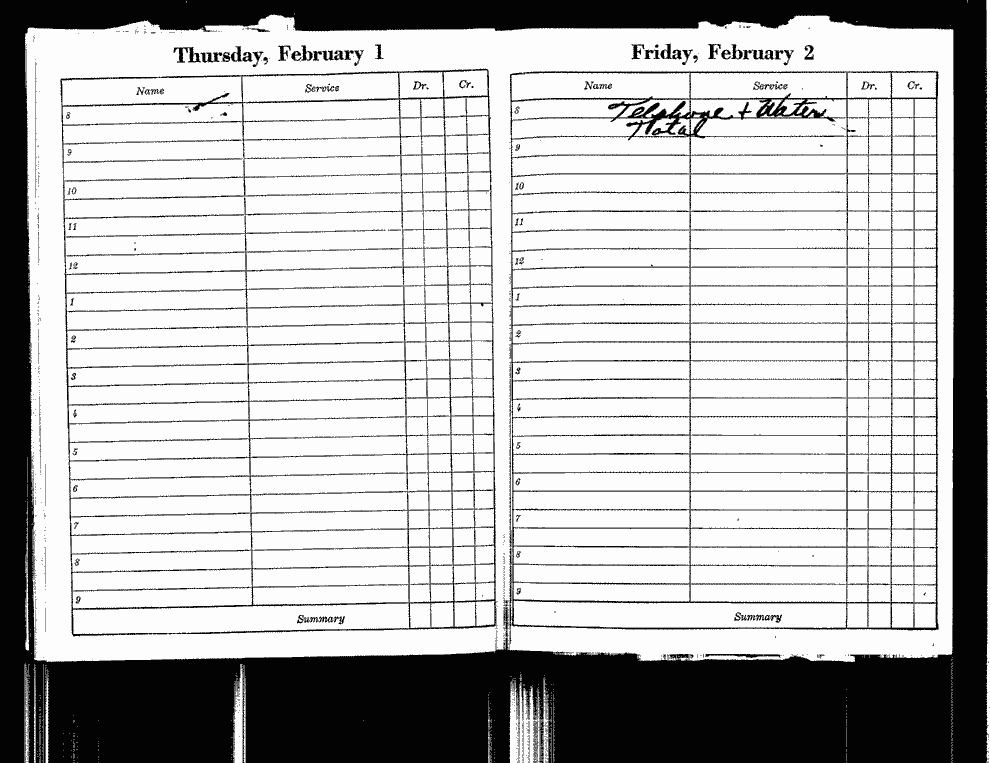 Thursday, February 1
Name Service Dr. Cr.
8
9
10
11
12
1
2
3
4
5
6
7
8
9
Summary
Friday, February 2
Name Service Dr. Cr.
8 Telephone + Water
Total
9
10
11
12
1
2
3
4
5
6
7
8
9
Summary